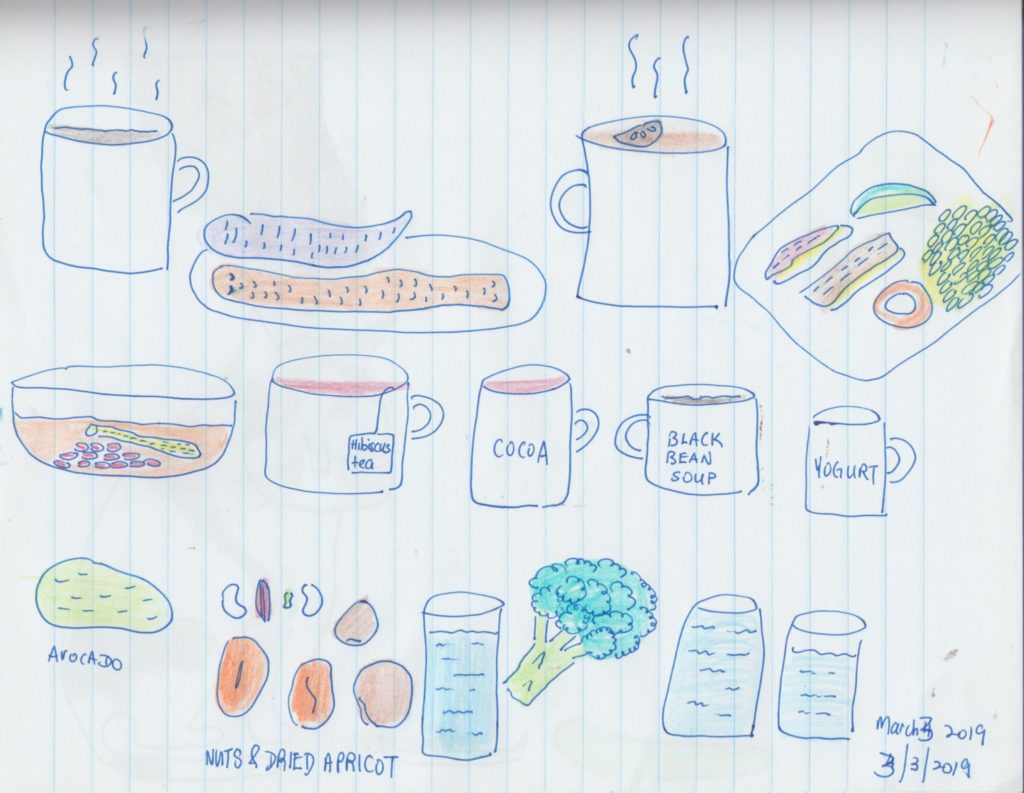 Hibiscus
tea
COCOA
BLACK
BEAN
SOUP
YOGURT
AVOCADO
NUTS & DRIED APRICOT
March 3 2019
3/3/2019